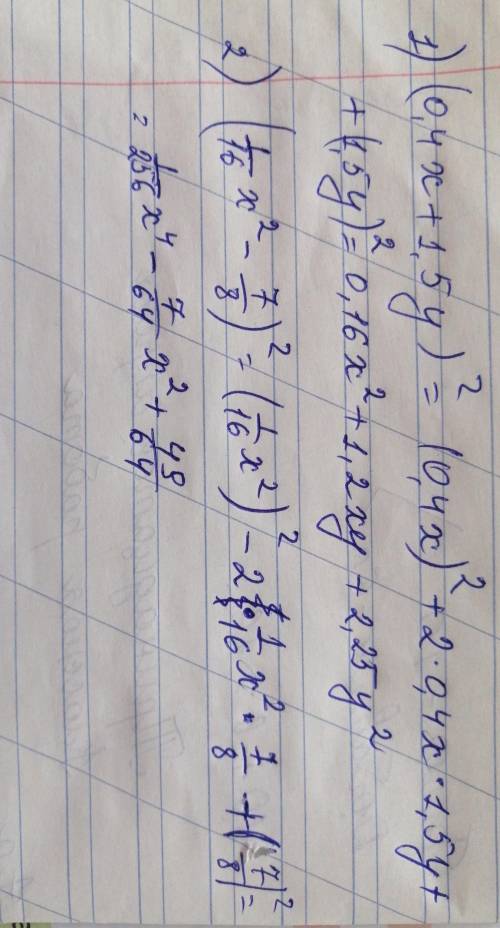 1) (0,4x+1,5y)² = (0,4x)² + 2·0,4x·1,5y+
+(1,5y)² = 0,16x² + 1,2xy + 2,25y²
2) (1/16 x² - 7/8)² = (1/16 x²)² - 2· 1/16 x² · 7/8 + (7/8)² =
= 1/256 x⁴ - 7/64 x² + 49/64